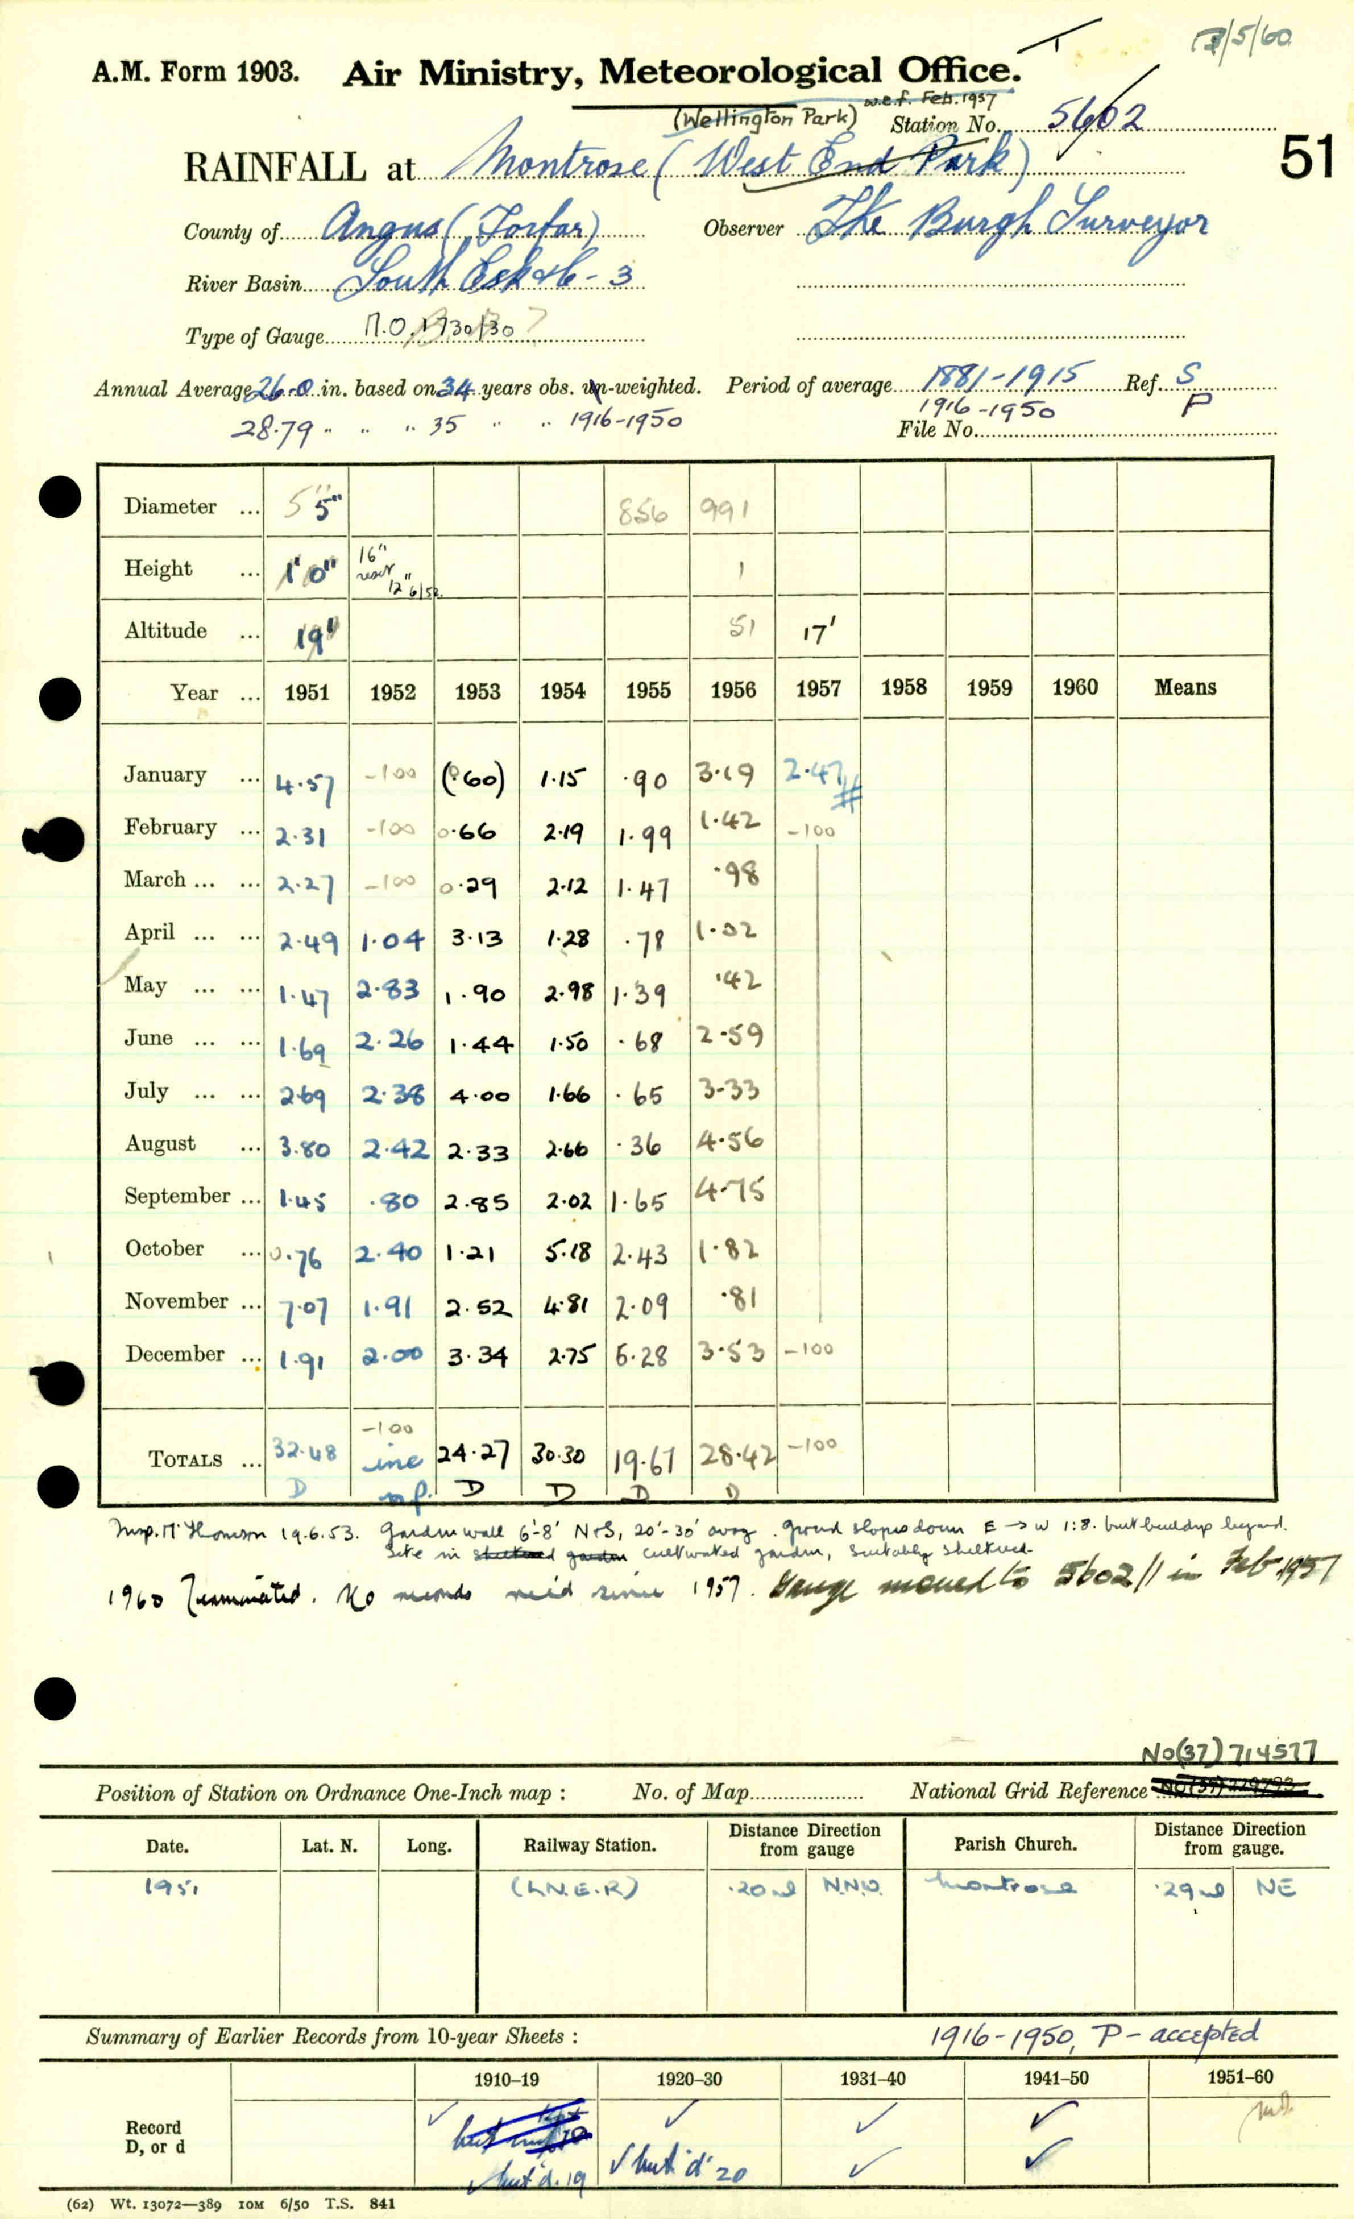 17/5/60
A.M. Form 1903. Air Ministry, Meteorological Office.
(Wellington Park) w.e.f. Feb. 1957 Station No. 5602
RAINFALL at Montrose (West End Park) 51
County of Angus (Forfar) Observer The Burgh Surveyor
River Basin South Esk &c - 3
Type of Gauge M.O. 1730/30
Annual Average 26.0 in. based on 34 years obs. un-weighted. Period of average 1881-1915 Ref. S
28.79 " " " 35 " " 1916-1950 1916-1950 P
File No.
Diameter ... 5" 5" 856 991
Height ... 1' 0" 16" reset 12" 6/52 1
Altitude ... 19' 51 17'
Year ... 1951 1952 1953 1954 1955 1956 1957 1958 1959 1960 Means
January ... 4.57 -100 (0.60) 1.15 .90 3.19 2.47 #
February ... 2.31 -100 0.66 2.19 1.99 1.42 -100
March ... ... 2.27 -100 0.29 2.12 1.47 .98
April ... ... 2.49 1.04 3.13 1.28 .78 1.02
May ... ... 1.47 2.83 1.90 2.98 1.39 .42
June ... ... 1.69 2.26 1.44 1.50 .68 2.59
July ... ... 2.69 2.38 4.00 1.66 .65 3.33
August ... 3.80 2.42 2.33 2.66 .36 4.56
September ... 1.45 .80 2.85 2.02 1.65 4.75
October ... 0.76 2.40 1.21 5.18 2.43 1.82
November ... 7.07 1.91 2.52 4.81 2.09 .81
December ... 1.91 2.00 3.34 2.75 5.28 3.53 -100
-100
TOTALS ... 32.48 inc 24.27 30.30 19.67 28.42 -100
D np. D D D D
Insp. Mr Thomson 19.6.53. Garden wall 6'-8' N+S, 20'-30' away. Ground slopes down E → W 1:8. but buildup beyond.
Site in sheltered garden cultivated garden, suitably sheltered
1960 Terminated. No records rec'd since 1957. Gauge moved to 5602/1 in Feb 1957
NO(37) 714577
Position of Station on Ordnance One-Inch map : No. of Map National Grid Reference
Date. Lat. N. Long. Railway Station. Distance Direction from gauge Parish Church. Distance Direction from gauge.
1951 (L.N.E.R) .20 ml N.N.W. Montrose .29 ml NE
Summary of Earlier Records from 10-year Sheets : 1916-1950, P - accepted
1910–19 1920–30 1931–40 1941–50 1951–60
Record
D, or d
✓ ✓ ✓ ✓
✓ but 'd' 19 ✓ but 'd' 20 ✓ ✓
(62) Wt. 13072—389 10M 6/50 T.S. 841